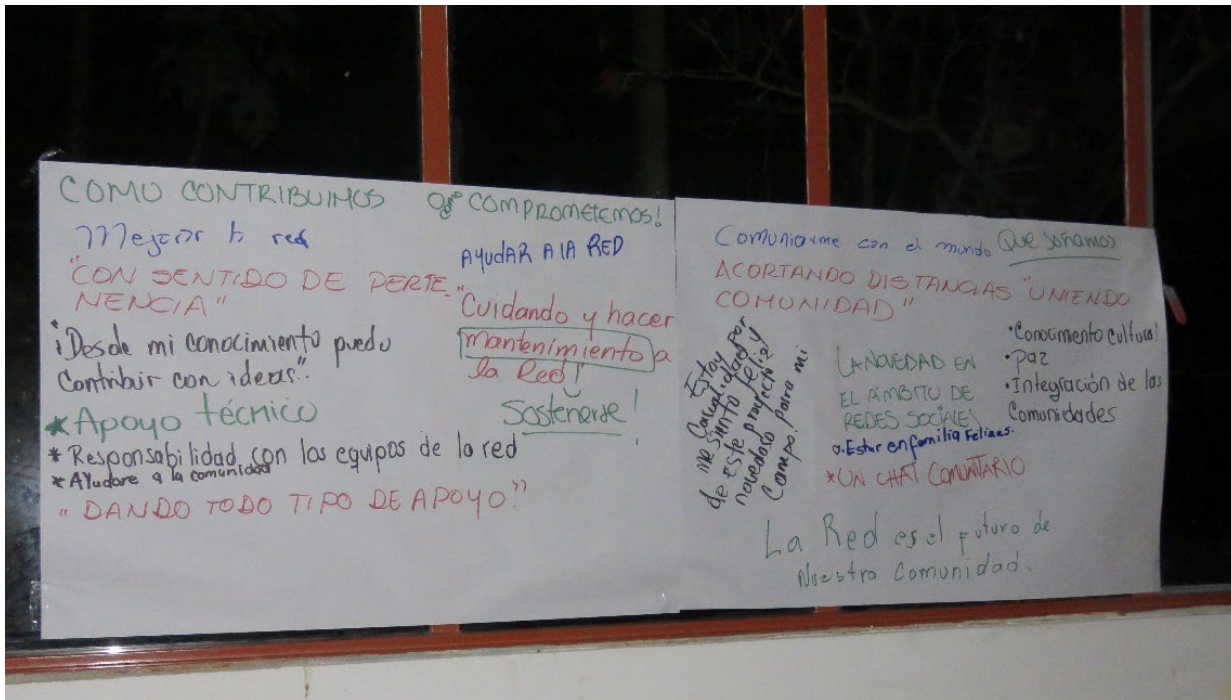 COMO CONTRIBUIMOS COMPROMETEMOS!
Mejorar la red
"CON SENTIDO DE PERTE-
NENCIA"
¡Desde mi conocimiento puedo
Contribuir con ideas".
*Apoyo técnico
* Responsabilidad con los equipos de la red
* AYudare a la comunidad
"DANDO TODO TIPO DE APOYO."
AYudAR A lA RED
"Cuidando y hacer
mantenimiento a
la Red!
Sostenerse!
Comunicarme con el mundo Que soñamos
ACORTANDO DISTANCIAS "UNIENDO
COMUNIDAD"
Estoy por
Casualidad y
me siento feliz
de este proyecto
novedoso para mi
Campo.
LA NOVEDAD EN
EL AMBITO DE
REDES SOCIALES
•Conocimiento Cultural
•Paz
•Integración de las
Comunidades
Estar en familia Felices.
*UN CHAT COMUNITARIO
La Red es el futuro de
Nuestra Comunidad.